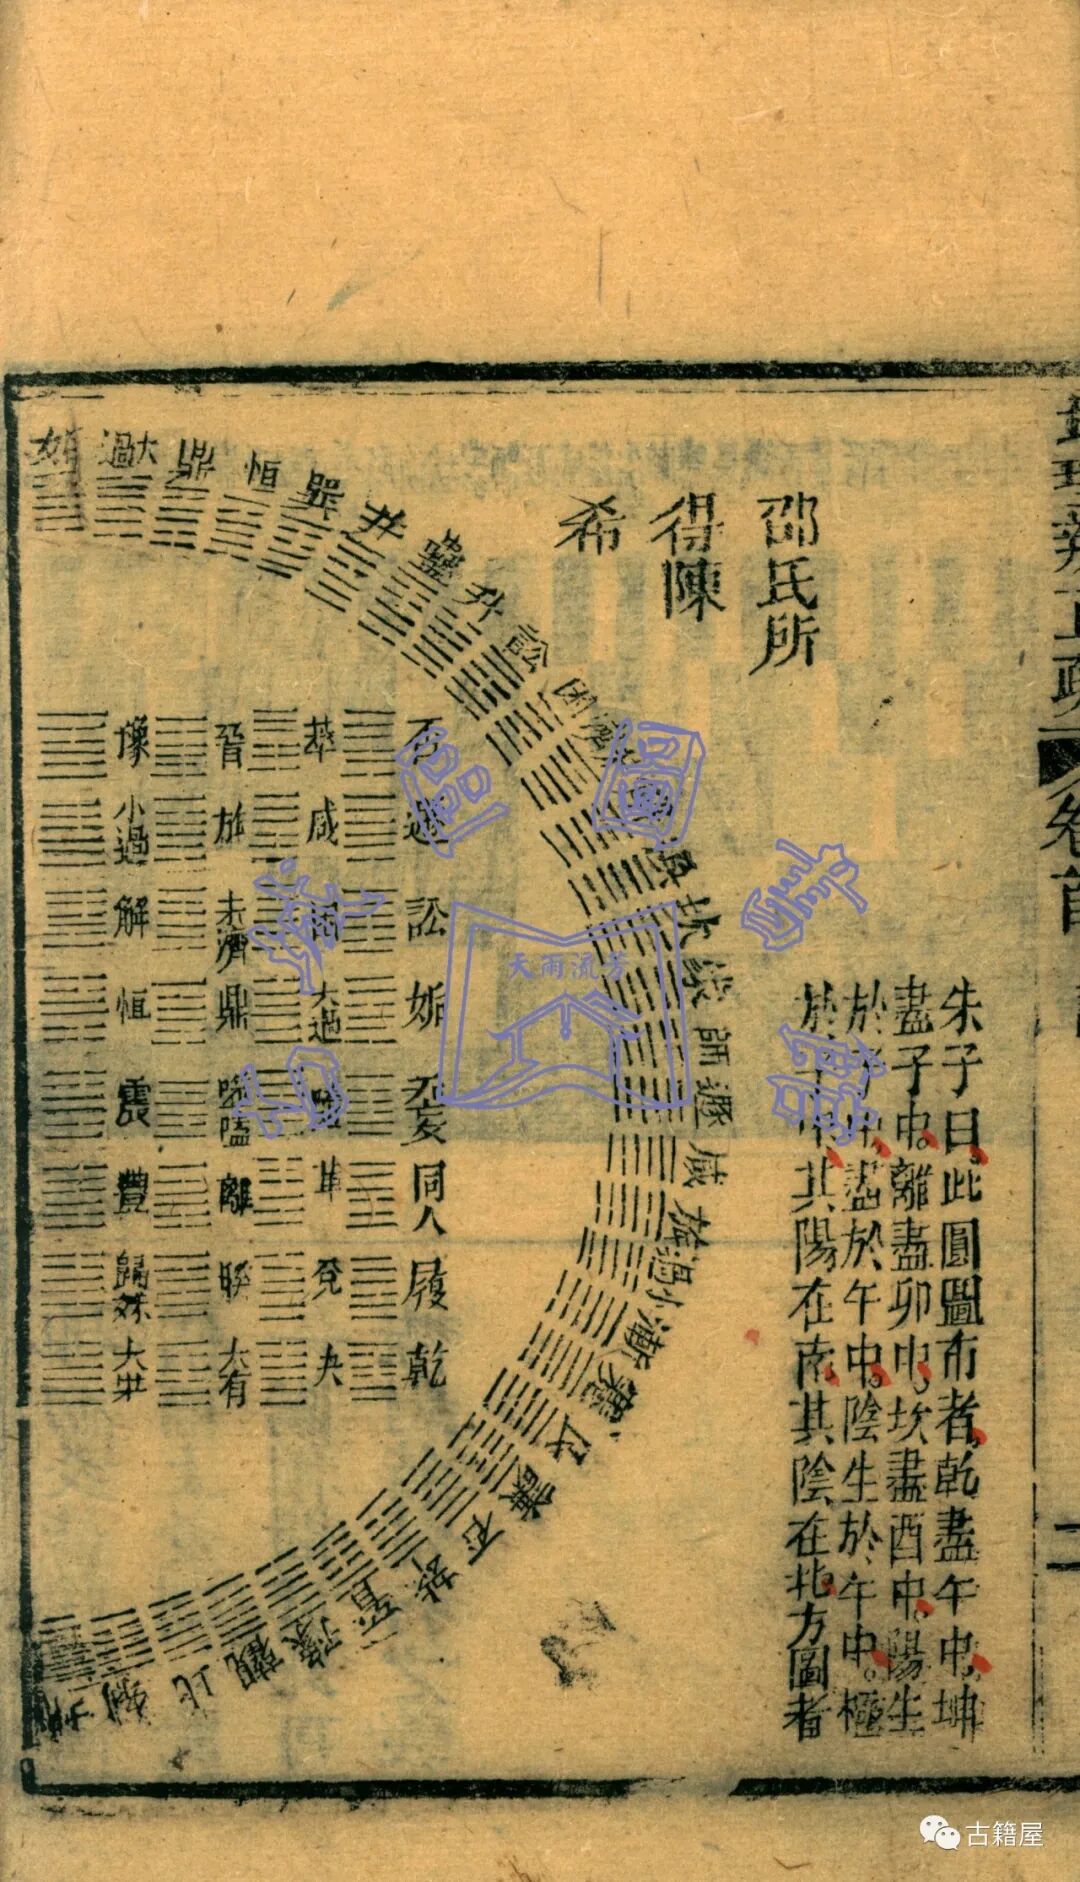 卷首
二
邵氏所
得陳
希
朱子曰此圓圖布者乾盡午中坤
盡子中離盡卯中坎盡酉中陽生
於子中盡於午中陰生於午中極
於子中其陽在南其陰在北方圖者
姤
大過
鼎
恒
巽
井
蠱
升
訟
困
坎
師
遯
咸
旅
小過
漸
蹇
艮
謙
否
萃
晉
豫
觀
比
剝
否
遯
訟
姤
无妄
同人
履
乾
萃
咸
困
大過
革
兌
夬
晉
旅
未濟
鼎
噬嗑
離
睽
大有
豫
小過
解
恒
震
豐
歸妹
大壯
天雨流芳
圖
古籍屋